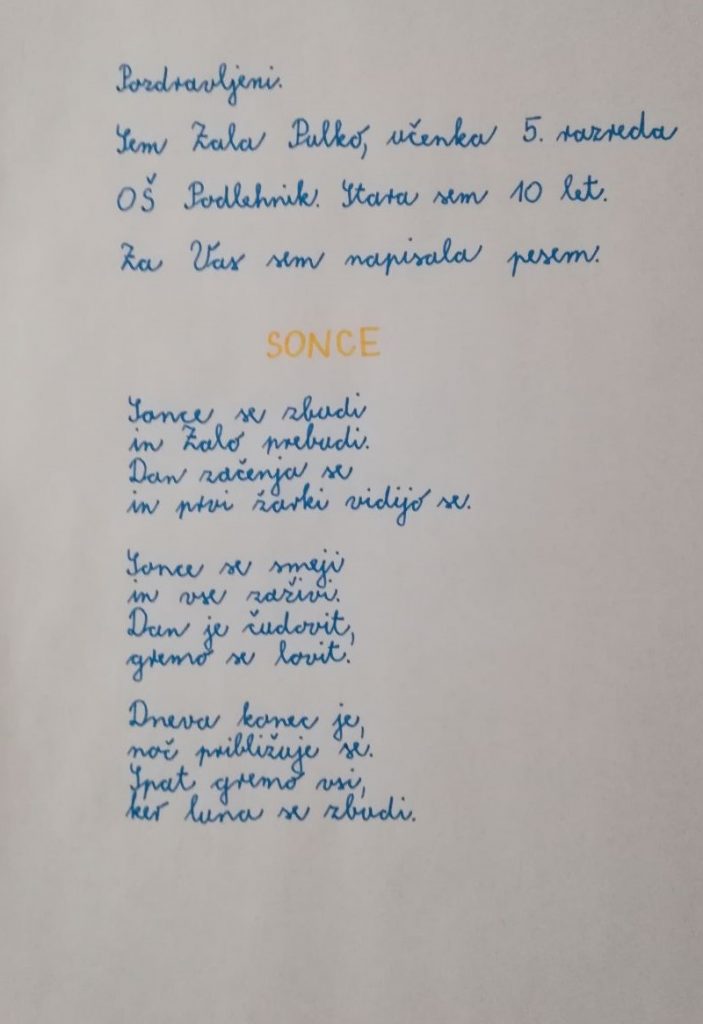 Pozdravljeni.
Sem Zala Pulko, učenka 5. razreda
OŠ Podlehnik. Stara sem 10 let.
Za Vas sem napisala pesem.
SONCE
Sonce se zbudi
in Zalo prebudi.
Dan začenja se
in prvi žarki vidijo se.
Sonce se smeji
in vse zaživi.
Dan je čudovit,
gremo se lovit.
Dneva konec je,
noč približuje se.
Spat gremo vsi,
ker luna se zbudi.